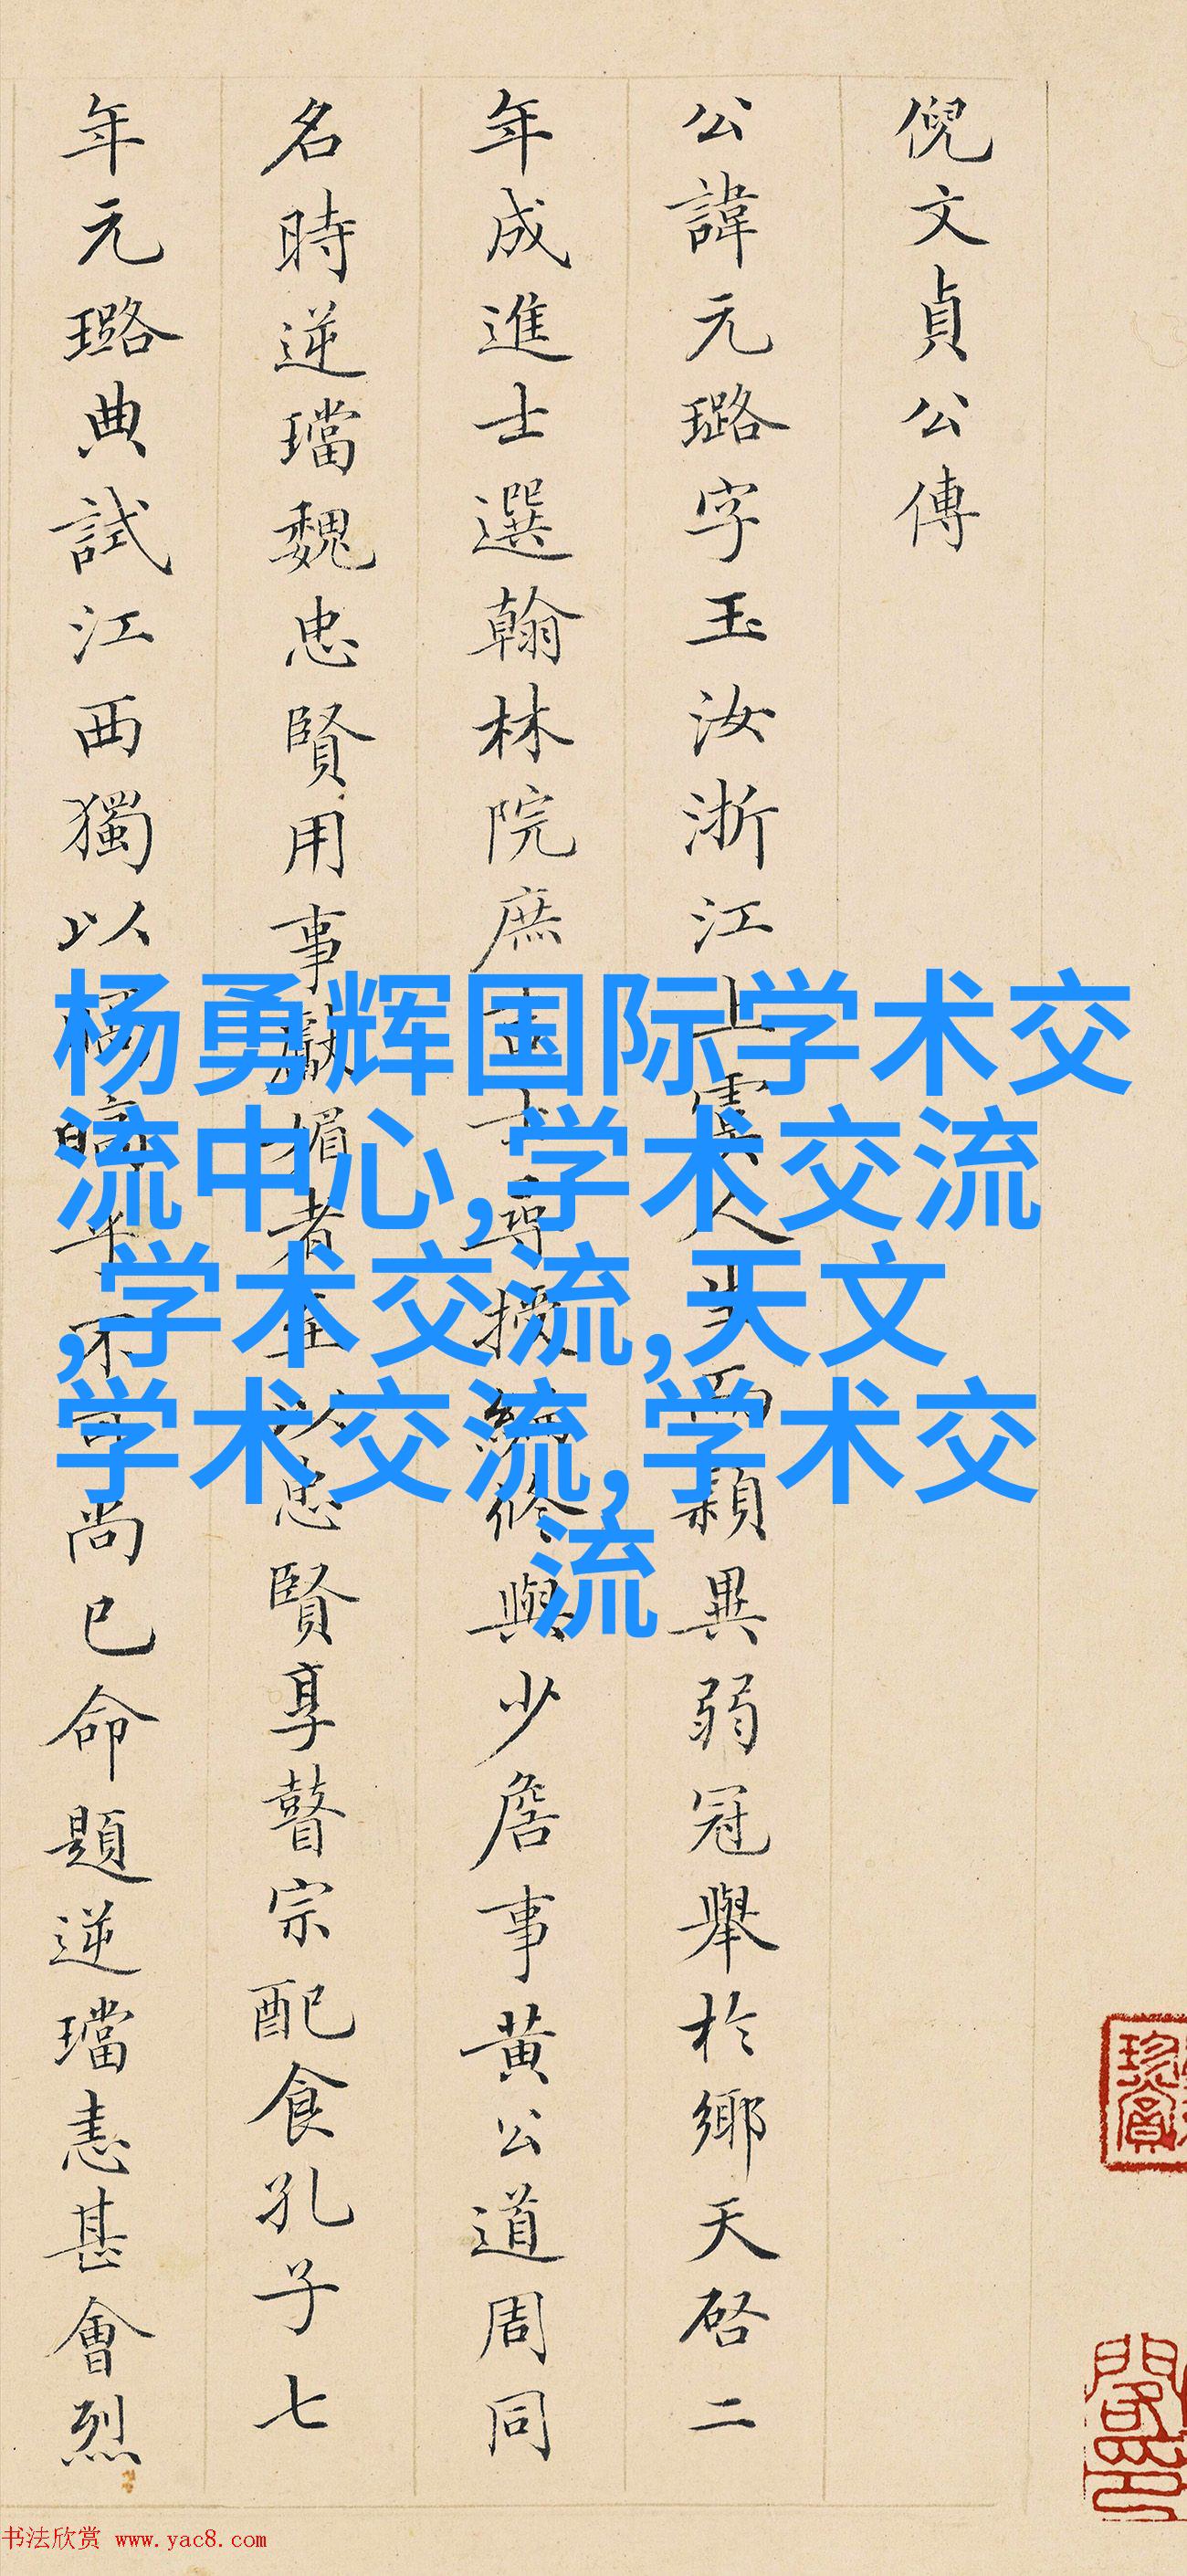 倪文貞公傳
公諱元璐字玉汝浙江上虞人而穎異弱冠舉於鄉天啓二
年成進士選翰林院庶吉士尋授編修與少詹事黃公道周同
名時逆璫魏忠賢用事獻媚者至以忠賢享瞽宗配食孔子七
年元璐典試江西獨以皜皜乎不可尚已命題逆璫恚甚會烈
杨勇辉国际学术交
流中心,学术交流
,学术交流,天文
学术交流,学术交
流
书法欣赏 www.yac8.com